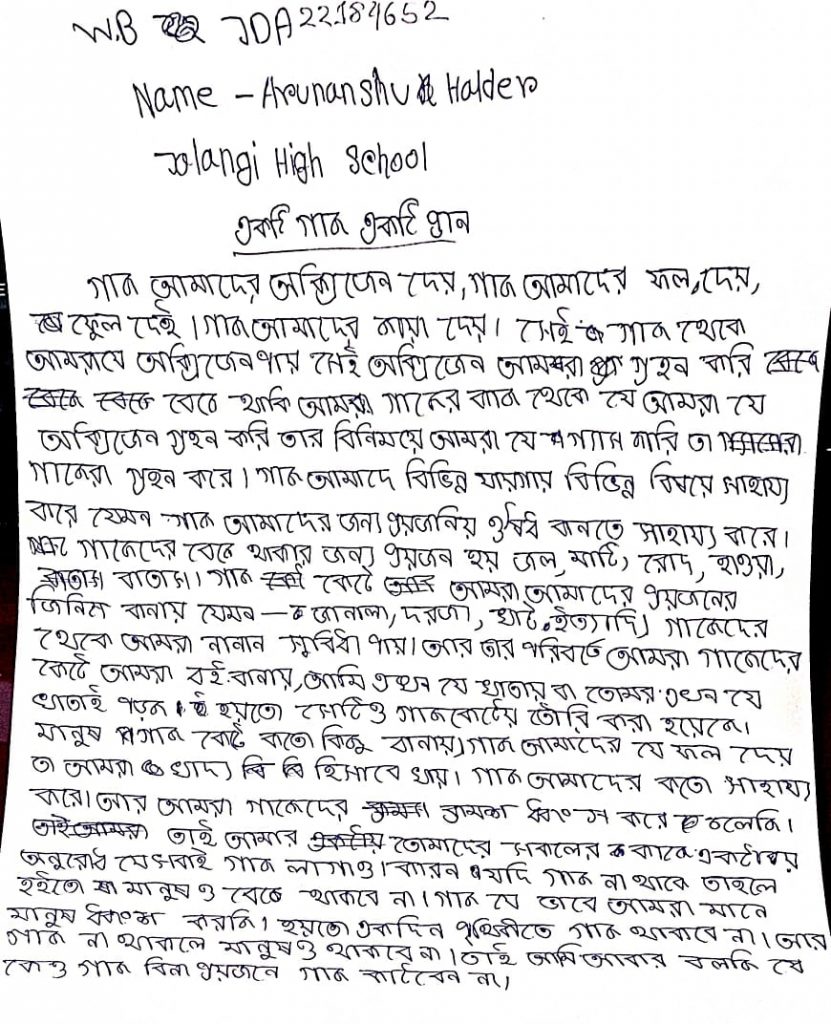 W.B JDA22184652
Name - Arunanshu Halder
Jalangi High School
একটি গাছ একটি প্রান
গাছ আমাদের অক্সিজেন দেয়, গাছ আমাদের ফল, দেয়,
ফুল দেই। গাছ আমাদের ছায়া দেয়। সেই গাছ থেকে
আমরাযে অক্সিজেন পায় সেই অক্সিজেন আমরা গ্রহন করি
বেচে থাকি আমরা গাছের কাছ থেকে যে আমরা যে
অক্সিজেন গ্রহন করি তার বিনিময়ে আমরা যে গ্যাস ছারি তা
গাছেরা গ্রহন করে। গাছ আমাদে বিভিন্ন যায়গায় বিভিন্ন বিষয়ে সাহায্য
করে যেমন গাছ আমাদের জন্য প্রয়জনিয় ঔষধ বানতে সাহায্য করে।
গাছেদের বেচে থাকার জন্য প্রয়জন হয় জল, মাটি, রোদ, হাওয়া,
বাতাস। গাছ কেটে আমরা আমাদের প্রয়জনের
জিনিস বানায় যেমন - জানালা, দরজা, খাট, ইত্যাদি। গাছেদের
থেকে আমরা নানান সুবিধা পায়। আর তার পরিবর্তে আমরা গাছেদের
কেটে আমরা বই বানায়, আমি এখন যে খাতায় বা তোমর এখন যে
খাতাই পড়ছ হয়তো সেটিও গাছকেটেয় তৈরি করা হয়েছে।
মানুষ গাছ কেটে কতো কিছু বানায়। গাছ আমাদের যে ফল দেয়
তা আমরা খাদ্য হিসাবে খায়। গাছ আমাদের কতো সাহায্য
করে। আর আমরা গাছেদের ধ্বংস করে চলেছি।
তাই আমার তোমাদের সকালের কাছে একটায়
অনুরোধ যে সবাই গাছ লাগাও। কারন যদি গাছ না থাকে তাহলে
হইতো মানুষ ও বেচে থাকবে না। গাছ যে ভাবে আমরা মানে
মানুষ ধ্বংস করছি। হয়তো একদিন পৃথিবীতে গাছ থাকবে না। আর
গাছ না থাকালে মানুষও থাকবে না। তাই আমি আবার বলছি যে
কেও গাছ বিনা প্রয়জনে গাছ কাটবেন না,